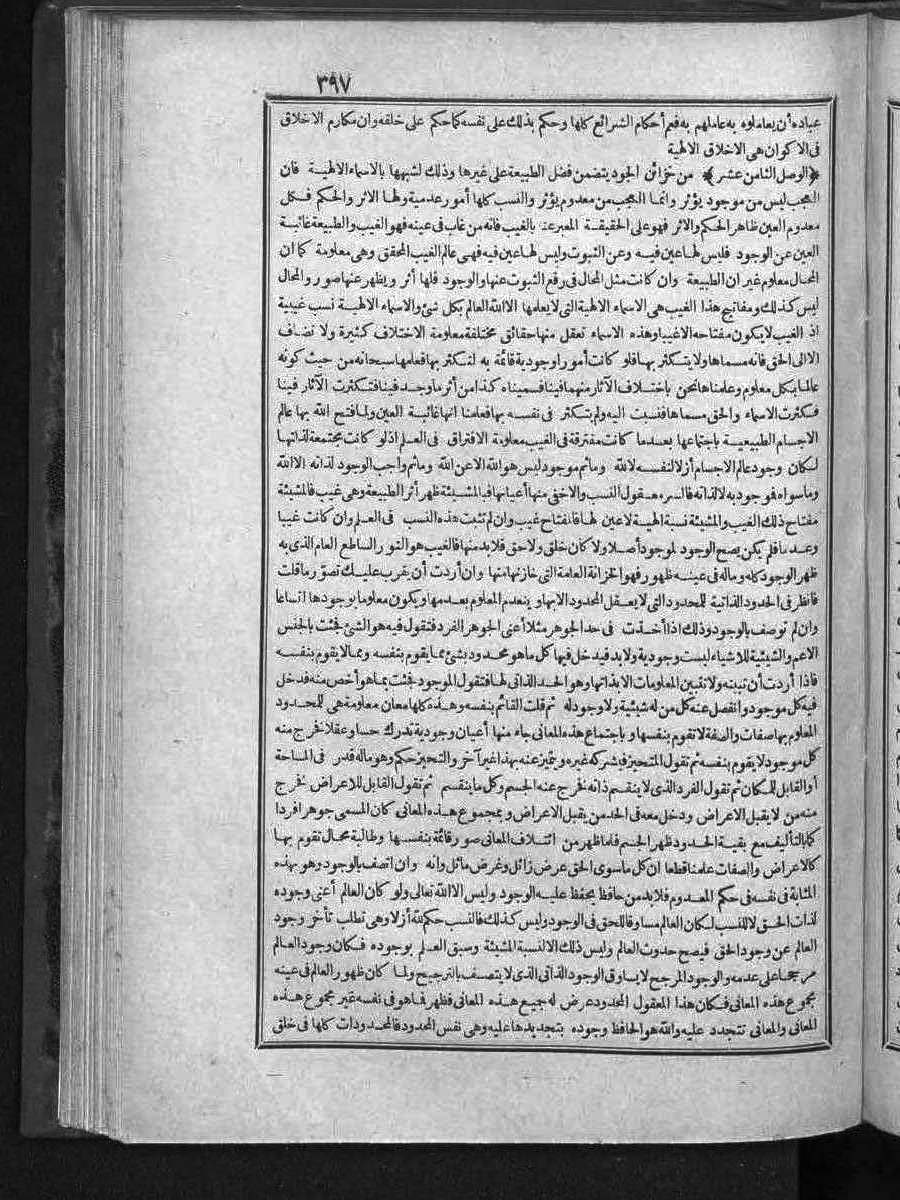 ٣٩٧
عباده أن يعاملوه به عاملهم به فعم أحكام الشرائع كلها وحكم بذلك على نفسه كما حكم على خلقه وان مكارم الاخلاق
فى الاكوان هى الاخلاق الالهية
﴿الوصل الثامن عشر﴾ من خزائن الجود يتضمن فضل الطبيعة على غيرها وذلك لشبهها بالاسماء الالهية فان
العجب ليس من موجود يؤثر وانما العجب من معدوم يؤثر والنسب كلها أمور عدمية ولها الاثر والحكم فكل
معدوم العين ظاهر الحكم والاثر فهو على الحقيقة المعبر عنه بالغيب فانه من غاب فى عينه فهو الغيب والطبيعة غائبة
العين عن الوجود فليس لها عين فيه وعن الثبوت وليس لها عين فيه فهى عالم الغيب المحقق وهى معلومة كما ان
المحال معلوم غير ان الطبيعة وان كانت مثل المحال فى رفع الثبوت عنها والوجود فلها أثر ويظهر عنها صور والمحال
ليس كذلك ومفاتيح هذا الغيب هى الاسماء الالهية التى لا يعلمها الا الله العالم بكل شئ والاسماء الالهية نسب غيبية
اذ الغيب لا يكون مفتاحه الا غيبا وهذه الاسماء تعقل منها حقائق مختلفة معلومة الاختلاف كثيرة ولا تضاف
الا الى الحق فانه مسماها ولا يتكثر بها فلو كانت أمورا وجودية قائمة به لتكثر بها فعلمها سبحانه من حيث كونه
عالما بكل معلوم وعلمناها نحن باختلاف الآثار منها فينا فسميناه كذا من أثر ما وجد فينا فتكثرت الآثار فينا
فكثرت الاسماء والحق مسماها فنسبت اليه ولم يتكثر فى نفسه بها فعلمنا انها غائبة العين ولما فتح الله بها عالم
الاجسام الطبيعية باجتماعها بعدما كانت مفترقة فى الغيب معلومة الافتراق فى العلم اذ لو كانت مجتمعة لذاتها
لكان وجود عالم الاجسام أزلا لنفسه لا لله وما ثم موجود ليس هو الله الا عن الله وما ثم واجب الوجود لذاته الا الله
وما سواه فموجود به لا لذاته فالسر معقول النسب والاخفى منها أعيانها فبالمشيئة ظهر أثر الطبيعة وهى غيب فالمشيئة
مفتاح ذلك الغيب والمشيئة نسبة الهية لا عين لها فالمفتاح غيب وان لم تثبت هذه النسب فى العلم وان كانت غيبا
وعدما فلم يكن يصح الوجود لموجود أصلا ولا كان خلق ولا حق فلا بد منها فالغيب هو النور الساطع العام الذى به
ظهر الوجود كله وماله فى عينه ظهور فهو الخزانة العامة التى خازنها منها وان أردت أن يقرب عليك تصور ما قلت
فانظر فى الحدود الذاتية للمحدود التى لا يعقل المحدود الا بها وينعدم المعلوم بعدمها ويكون معلوما بوجودها اتساعا
وان لم توصف بالوجود وذلك اذا أخذت فى حد الجوهر مثلا أعنى الجوهر الفرد فتقول فيه هو الشئ فجئت بالجنس
الاعم والشيئية للاشياء ليست وجودية ولا بد فيدخل فيها كل ما هو محدود بشئ مما يقوم بنفسه ومما لا يقوم بنفسه
فاذا أردت أن تبينه ولا تتبين المعلومات الا بذاتها وهو الحد الذاتى لها فتقول الموجود فجئت بما هو أخص منه فدخل
فيه كل موجود وانفصل عنه كل من له شيئية ولا وجود له ثم قلت القائم بنفسه وهذه كلها معان معلومة هى للمحدود
المعلوم بها صفات والصفة لا تقوم بنفسها وباجتماع هذه المعانى جاء منها أعيان وجودية تدرك حسا وعقلا فخرج منه
كل موجود لا يقوم بنفسه ثم تقول المتحيز فيشركه غيره ويتميز عنه بهذا غير آخر والتحيز حكم وهو ماله قدر فى المساحة
أو القابل للمكان ثم تقول الفرد الذى لا ينقسم ذاته فخرج عنه الجسم وكل ما ينقسم ثم تقول القابل للاعراض فخرج
منه من لا يقبل الاعراض ودخل معه فى الحد من يقبل الاعراض وبمجموع هذه المعانى كان المسمى جوهرا فردا
كما بالتأليف مع بقية الحدود ظهر الجسم فلما ظهر من ائتلاف المعانى صور قائمة بنفسها وطالبة محال تقوم بها
كالاعراض والصفات علمنا قطعا ان كل ما سوى الحق عرض زائل وغرض مائل وانه وان اتصف بالوجود وهو بهذه
المثابة فى نفسه فى حكم المعدوم فلا بد من حافظ يحفظ عليه الوجود وليس الا الله تعالى ولو كان العالم أعنى وجوده
لذات الحق لا للنسب لكان العالم مساوقا للحق فى الوجود وليس كذلك فالنسب حكم لله أزلا وهى تطلب تأخر وجود
العالم عن وجود الحق فيصح حدوث العالم وليس ذلك الا لنسبة المشيئة وسبق العلم بوجوده فكان وجود العالم
مرجحا على عدمه والوجود المرجح لا يساوق الوجود الذاتى الذى لا يتصف بالترجيح ولما كان ظهور العالم فى عينه
مجموع هذه المعانى فكان هذا المعقول المحدود عرض له جميع هذه المعانى فظهر فما هو فى نفسه غير مجموع هذه
المعانى والمعانى تتجدد عليه والله هو الحافظ وجوده بتجديدها عليه وهى نفس المحدود فالمحدودات كلها فى خلق